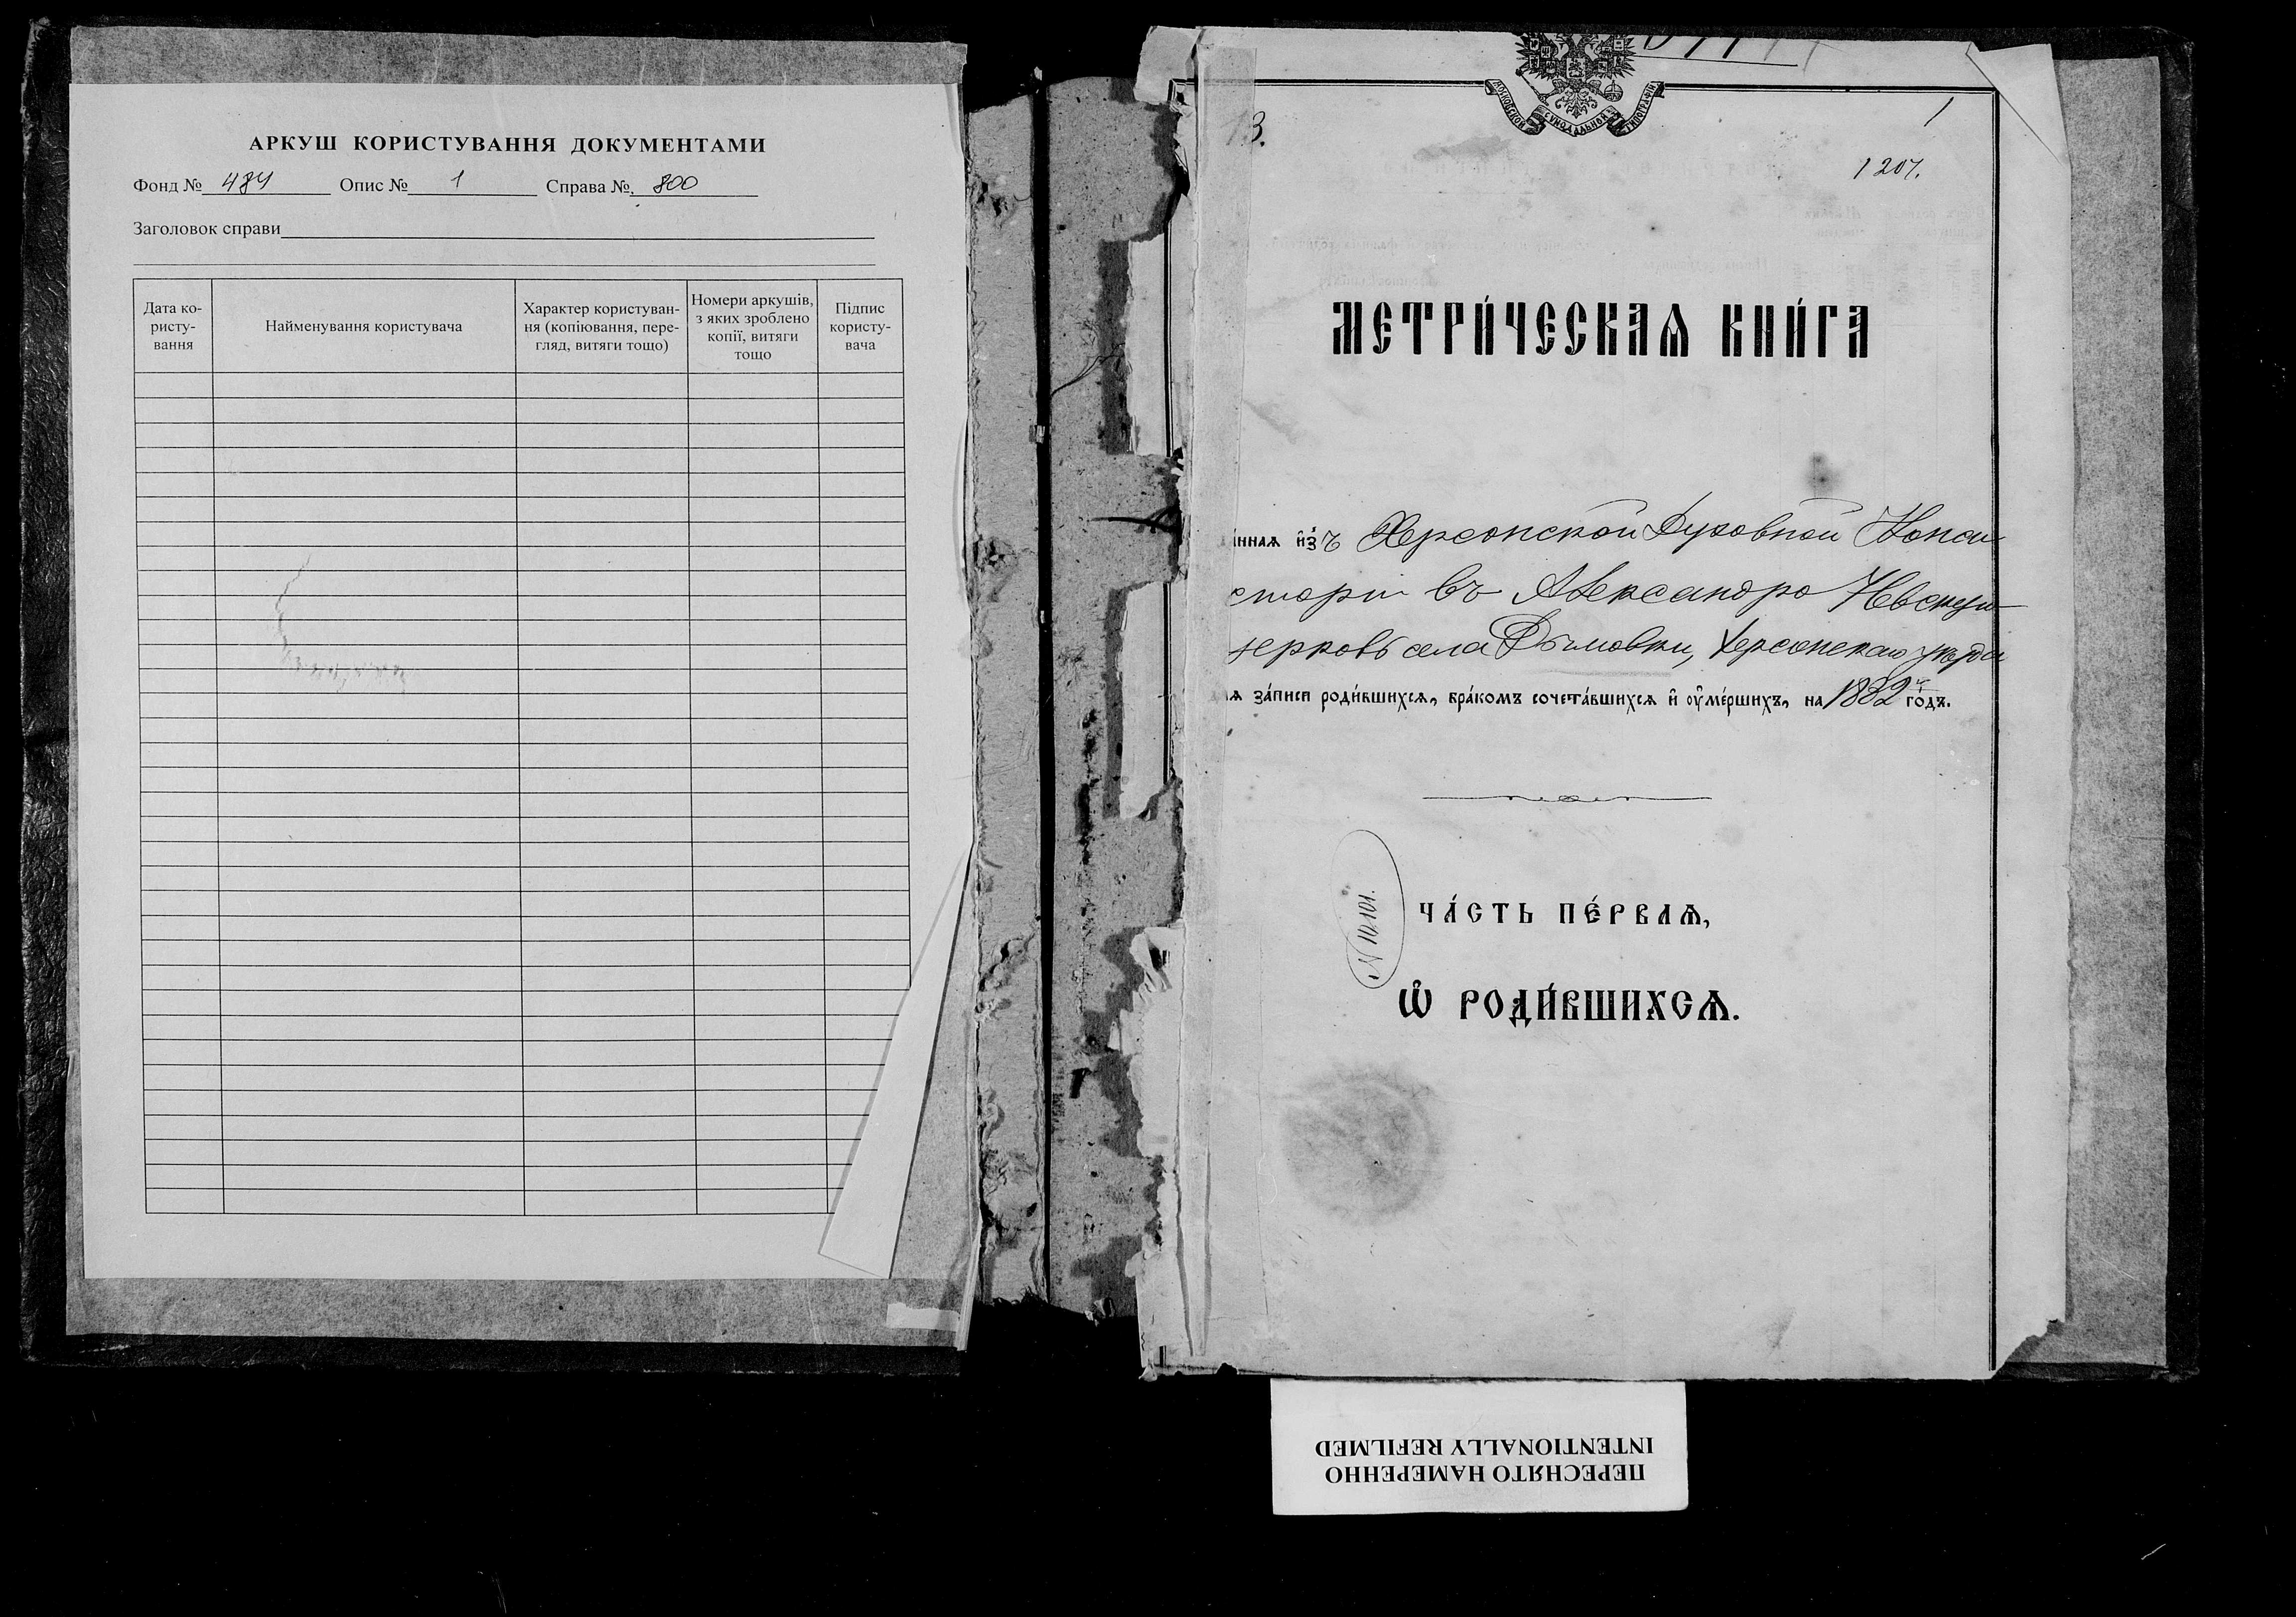 АРКУШ КОРИСТУВАННЯ ДОКУМЕНТАМИ
Фонд № 484 Опис № 1 Справа №. 800
Заголовок справи
Дата ко-
ристу-
вання
Найменування користувача
Характер користуван-
ня (копіювання, пере-
гляд, витяги тощо)
Номери аркушів,
з яких зроблено
копії, витяги
тощо
Підпис
користу-
вача
МОСКОВСКОЙ СѴНОДАЛЬНОЙ ТИПОГРАФІИ
1
13.
1207.
МЕТРИ́ЧЕСКАѦ КНИ́ГА
нная изъ Херсонской Духовной Конси-
сторіи въ Александро Невскую
церковь села Дымовки, Херсонскаго уѣзда
ля за́писи роди́вшихсѧ, бра́комъ сочета́вшихсѧ и҆ ᲂу҆ме́ршихъ, на 1882 й го́дъ.
№ 10,101.
ЧА́СТЬ ПЕ́РВАѦ,
Ѡ҆ РОДИ́ВШИХСѦ.
ПЕРЕСНЯТО НАМЕРЕННО
INTENTIONALLY REFILMED